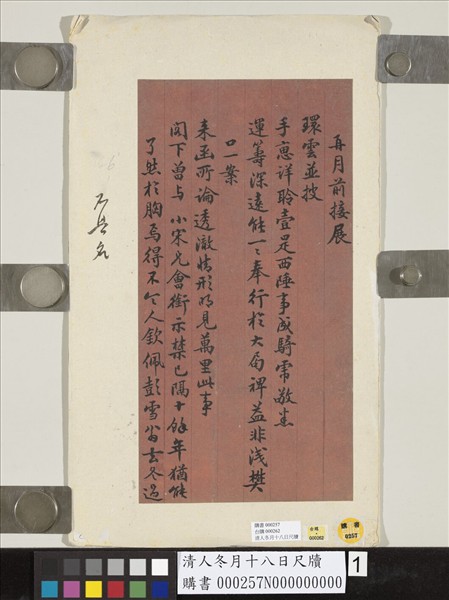 再月前接展
環雲並披
手惠詳聆壹是西陲事成騎需敬悉
運籌深遠能一一奉行於大局裨益非淺樊
口一案
來函所論透澈情形明見萬里此事
閣下曾與 小宋兄會銜示禁已隔十餘年猶能
了然於胸烏得不令人欽佩彭雪翁去冬過
不具名
購書 000257
台購 000262
清人冬月十八日尺牘
000262
購書
0257
清人冬月十八日尺牘
購書 000257N000000000
1